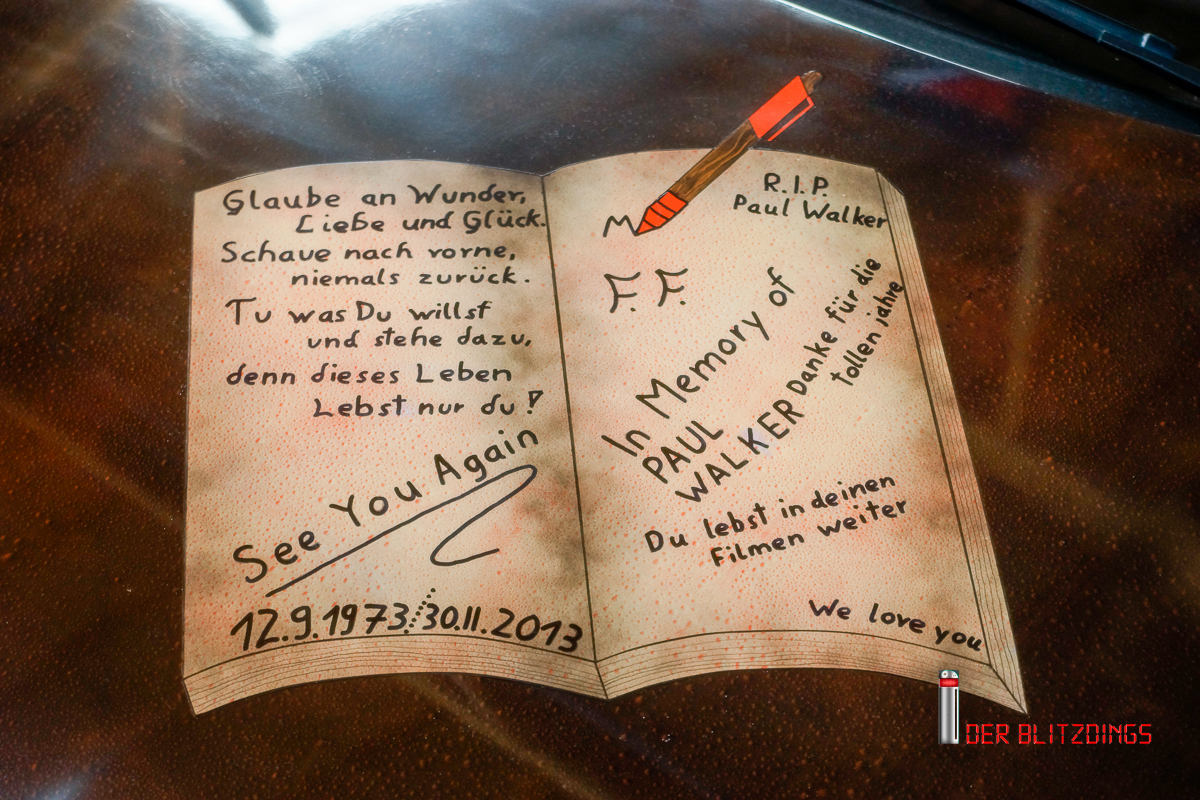 Glaube an Wunder,
Liebe und Glück.
Schaue nach vorne,
niemals zurück.
Tu was Du willst
und stehe dazu,
denn dieses Leben
Lebst nur du!
See You Again
12.9.1973 30.11.2013
R.I.P.
Paul Walker
F. F.
In Memory of
PAUL
WALKER Danke für die
tollen jahre
Du lebst in deinen
Filmen weiter
We love you
DER BLITZDINGS